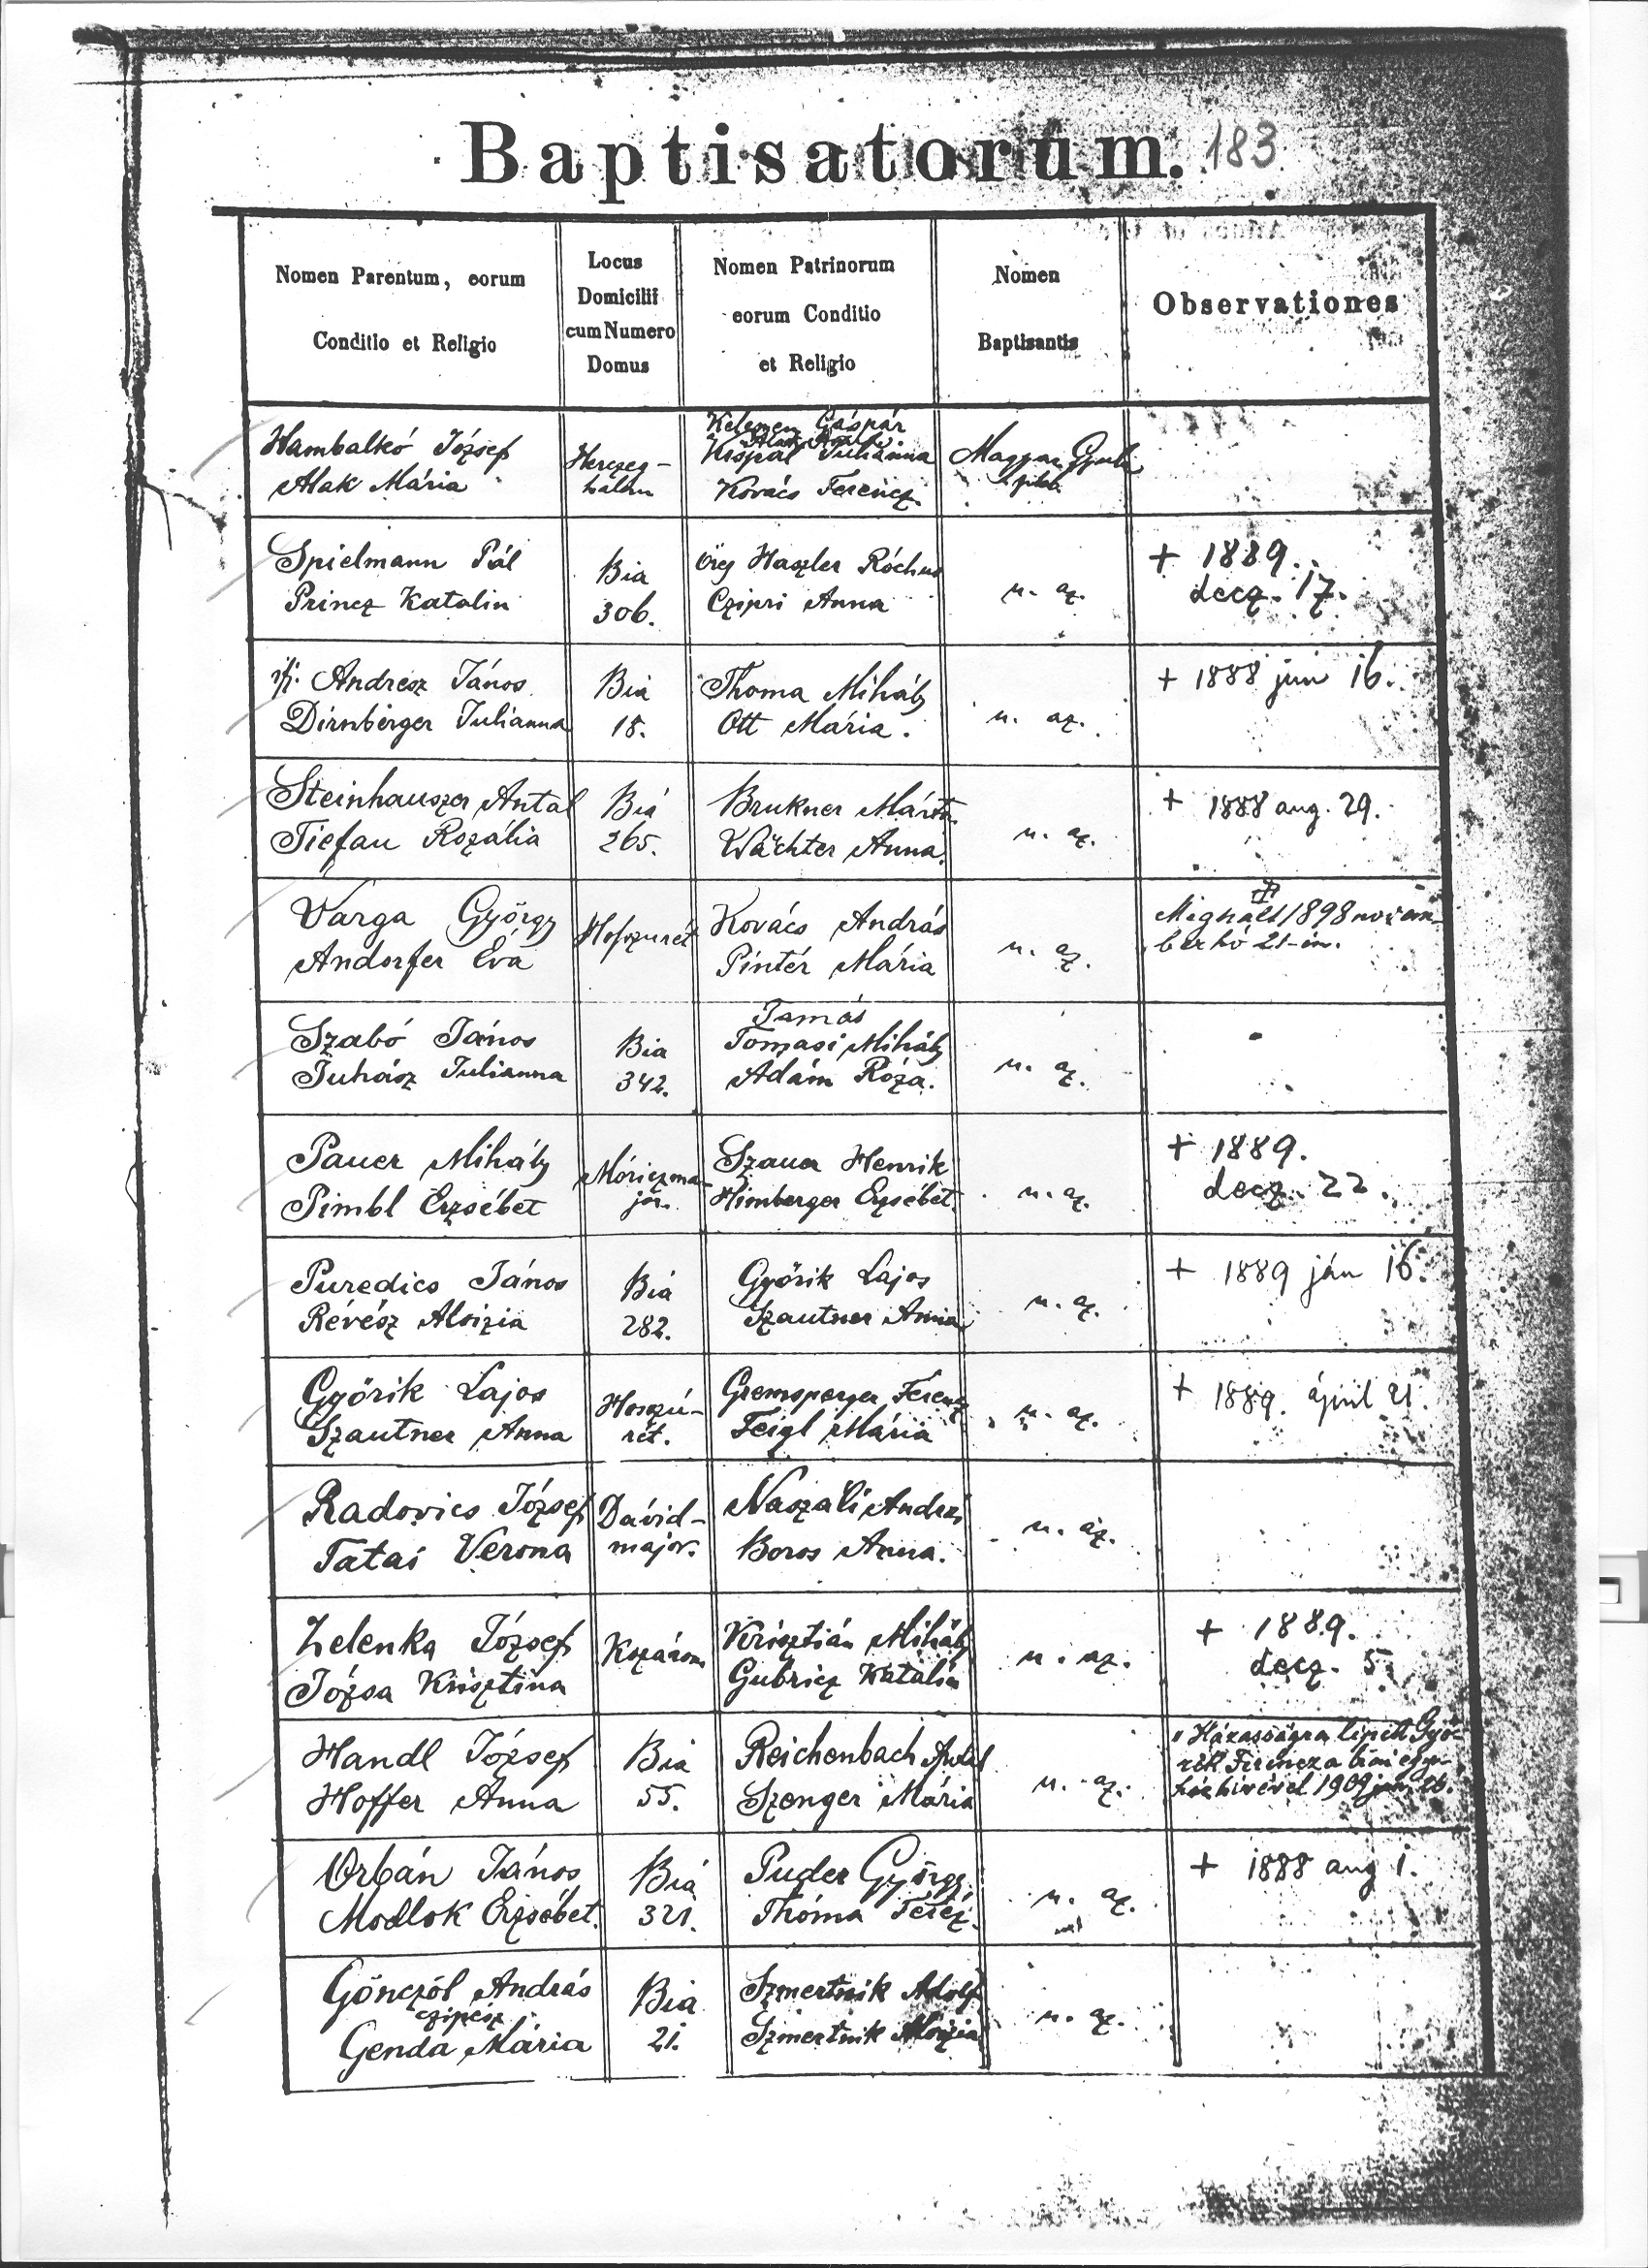 Baptisatorum. 183
Nomen Parentum, eorum
Conditio et Religio
Locus
Domicilii
cum Numero
Domus
Nomen Patrinorum
eorum Conditio
et Religio
Nomen
Baptisantis
Observationes
Hambalkó József
Alak Mária
Herczeg-
halom
Kelemen Gáspár
Kispál Julianna
Kovács Ferencz
Magyar Gyula
Spielmann Pál
Princz Katalin
Bia
306.
Öreg Haszler Róchus
Czipri Anna
u. az.
+ 1889.
decz. 17.
ifj. Andresz János
Dirnberger Julianna
Bia
18.
Thoma Mihály
Ott Mária.
u. az.
+ 1888 jun 16.
Steinhauszer Antal
Tiefau Rozália
Bia
265.
Brukner Márton
Wächter Anna.
u. az.
+ 1888 aug. 29.
Varga György
Andorfer Éva
Hoszurét
Kovács András
Pintér Mária
u. az.
Meghalt 1898 novem-
ber hó 21-én.
Szabó János
Juhász Julianna
Bia
342.
Tamás
Tomasi Mihály
Ádám Róza.
u. az.
Pauer Mihály
Pimbl Erzsébet
Móriczma-
jor.
Szauer Henrik
Himberger Erzsébet.
u. az.
+ 1889.
decz. 22.
Puredics János
Révész Aloizia
Bia
282.
Győrik Lajos
Szautner Anna
u. az.
+ 1889 ján 16.
Győrik Lajos
Szautner Anna
Hoszú-
rét.
Gremsperger Ferencz
Feigl Mária
u. az.
+ 1889. ápril 21.
Radovics József
Tatai Verona
Dávid-
major.
Naszáli András
Boros Anna.
u. az.
Zelenka József
Józsa Krisztina
Kszárom
Krisztián Mihály
Gubricz Katalin
u. az.
+ 1889.
decz. 5.
Handl József
Hoffer Anna
Bia
55.
Reichenbach Antal
Szenger Mária
u. az.
Házasságra lépett Győ-
rik Ferencz a biai egy-
ház hívével 1909
Orbán János
Modlok Erzsébet.
Bia
321.
Puder György
Thóma Teréz.
u. az.
+ 1888 aug 1.
Gönczöl András
czipész
Genda Mária
Bia
21.
Szmertnik Adolf
Szmertnik Aloizia
u. az.